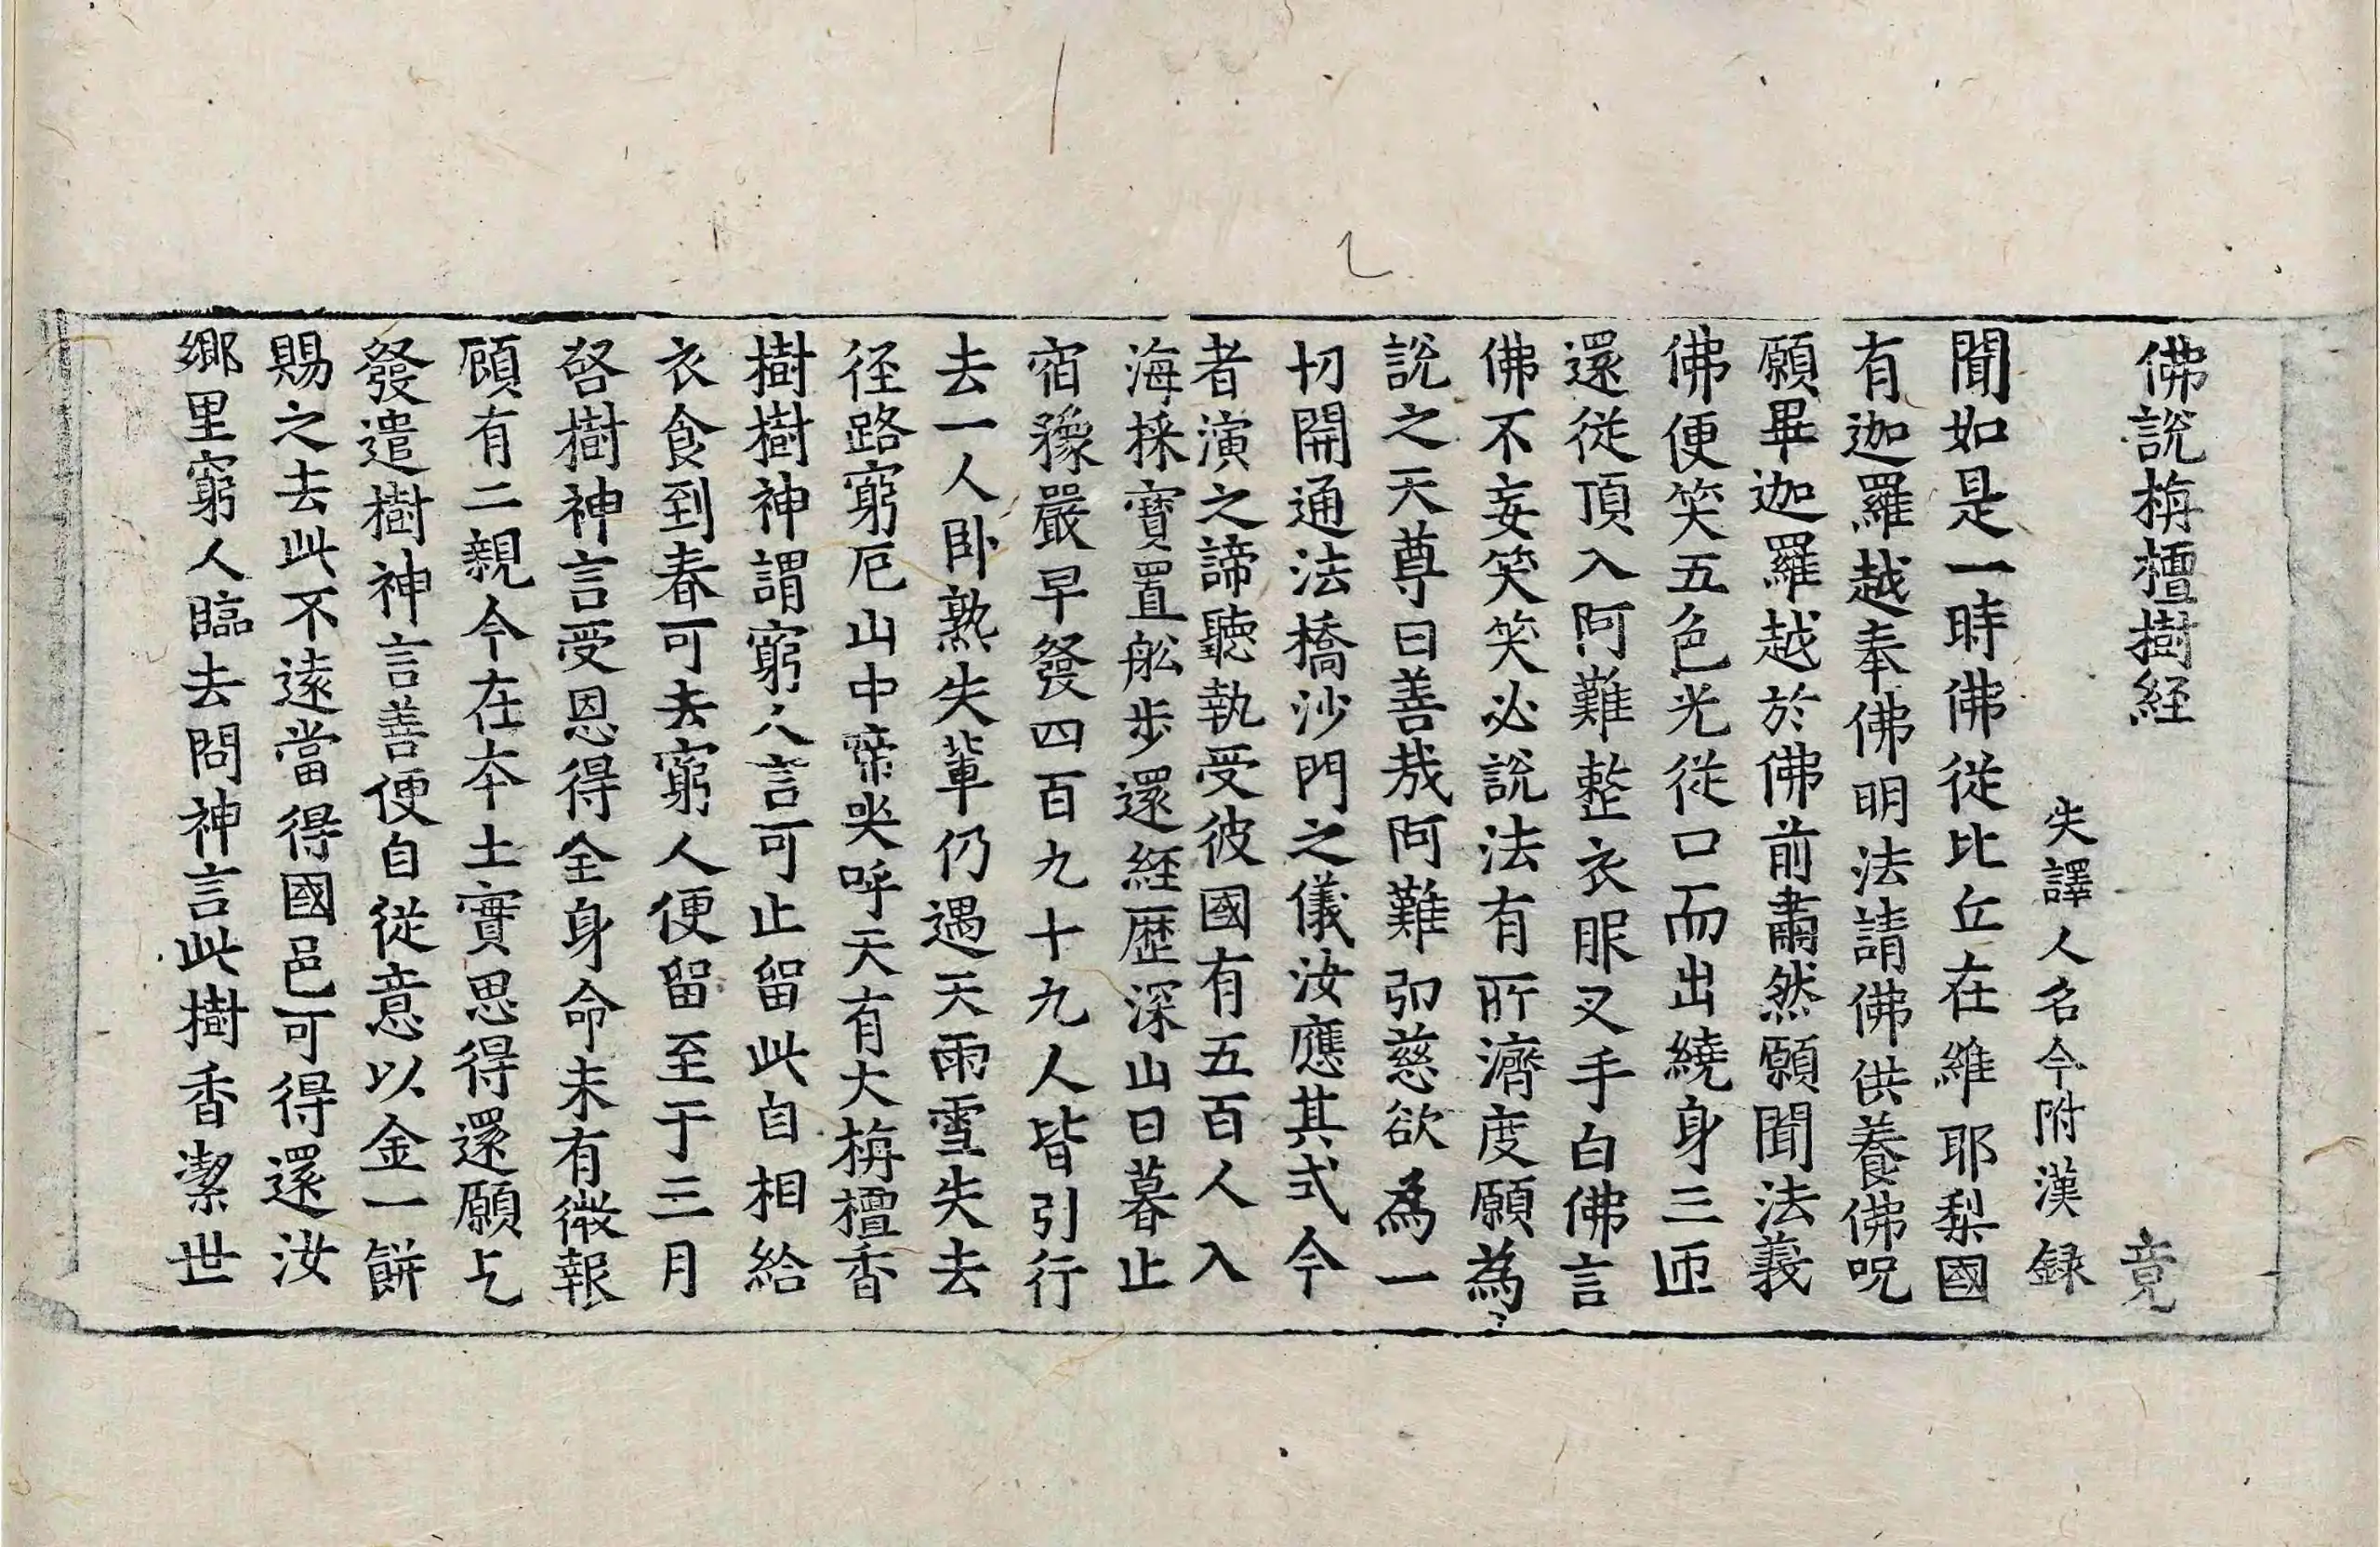 佛說栴檀樹経 竟
失譯人名今附漢録
聞如是一時佛從比丘在維耶梨國
有迦羅越奉佛明法請佛供養佛呪
願畢迦羅越於佛前肅然願聞法義
佛便笑五色光從口而出繞身三匝
還從頂入阿難整衣服叉手白佛言
佛不妄笑笑必說法有所濟度願為
說之天尊曰善哉阿難弘慈欲為一
切開通法橋沙門之儀汝應其式今
者演之諦聽執受彼國有五百人入
海採寶置舩步還経歷深山日暮止
宿豫嚴早發四百九十九人皆引行
去一人卧熟失輩仍遇天雨雪失去
径路窮厄山中啼哭呼天有大栴檀香
樹樹神謂窮人言可止留此自相給
衣食到春可去窮人便留至于三月
啓樹神言受恩得全身命未有微報
顧有二親今在本土實思得還願乞
發遣樹神言善便自從意以金一餅
賜之去此不遠當得國邑可得還汝
鄉里窮人臨去問神言此樹香潔世